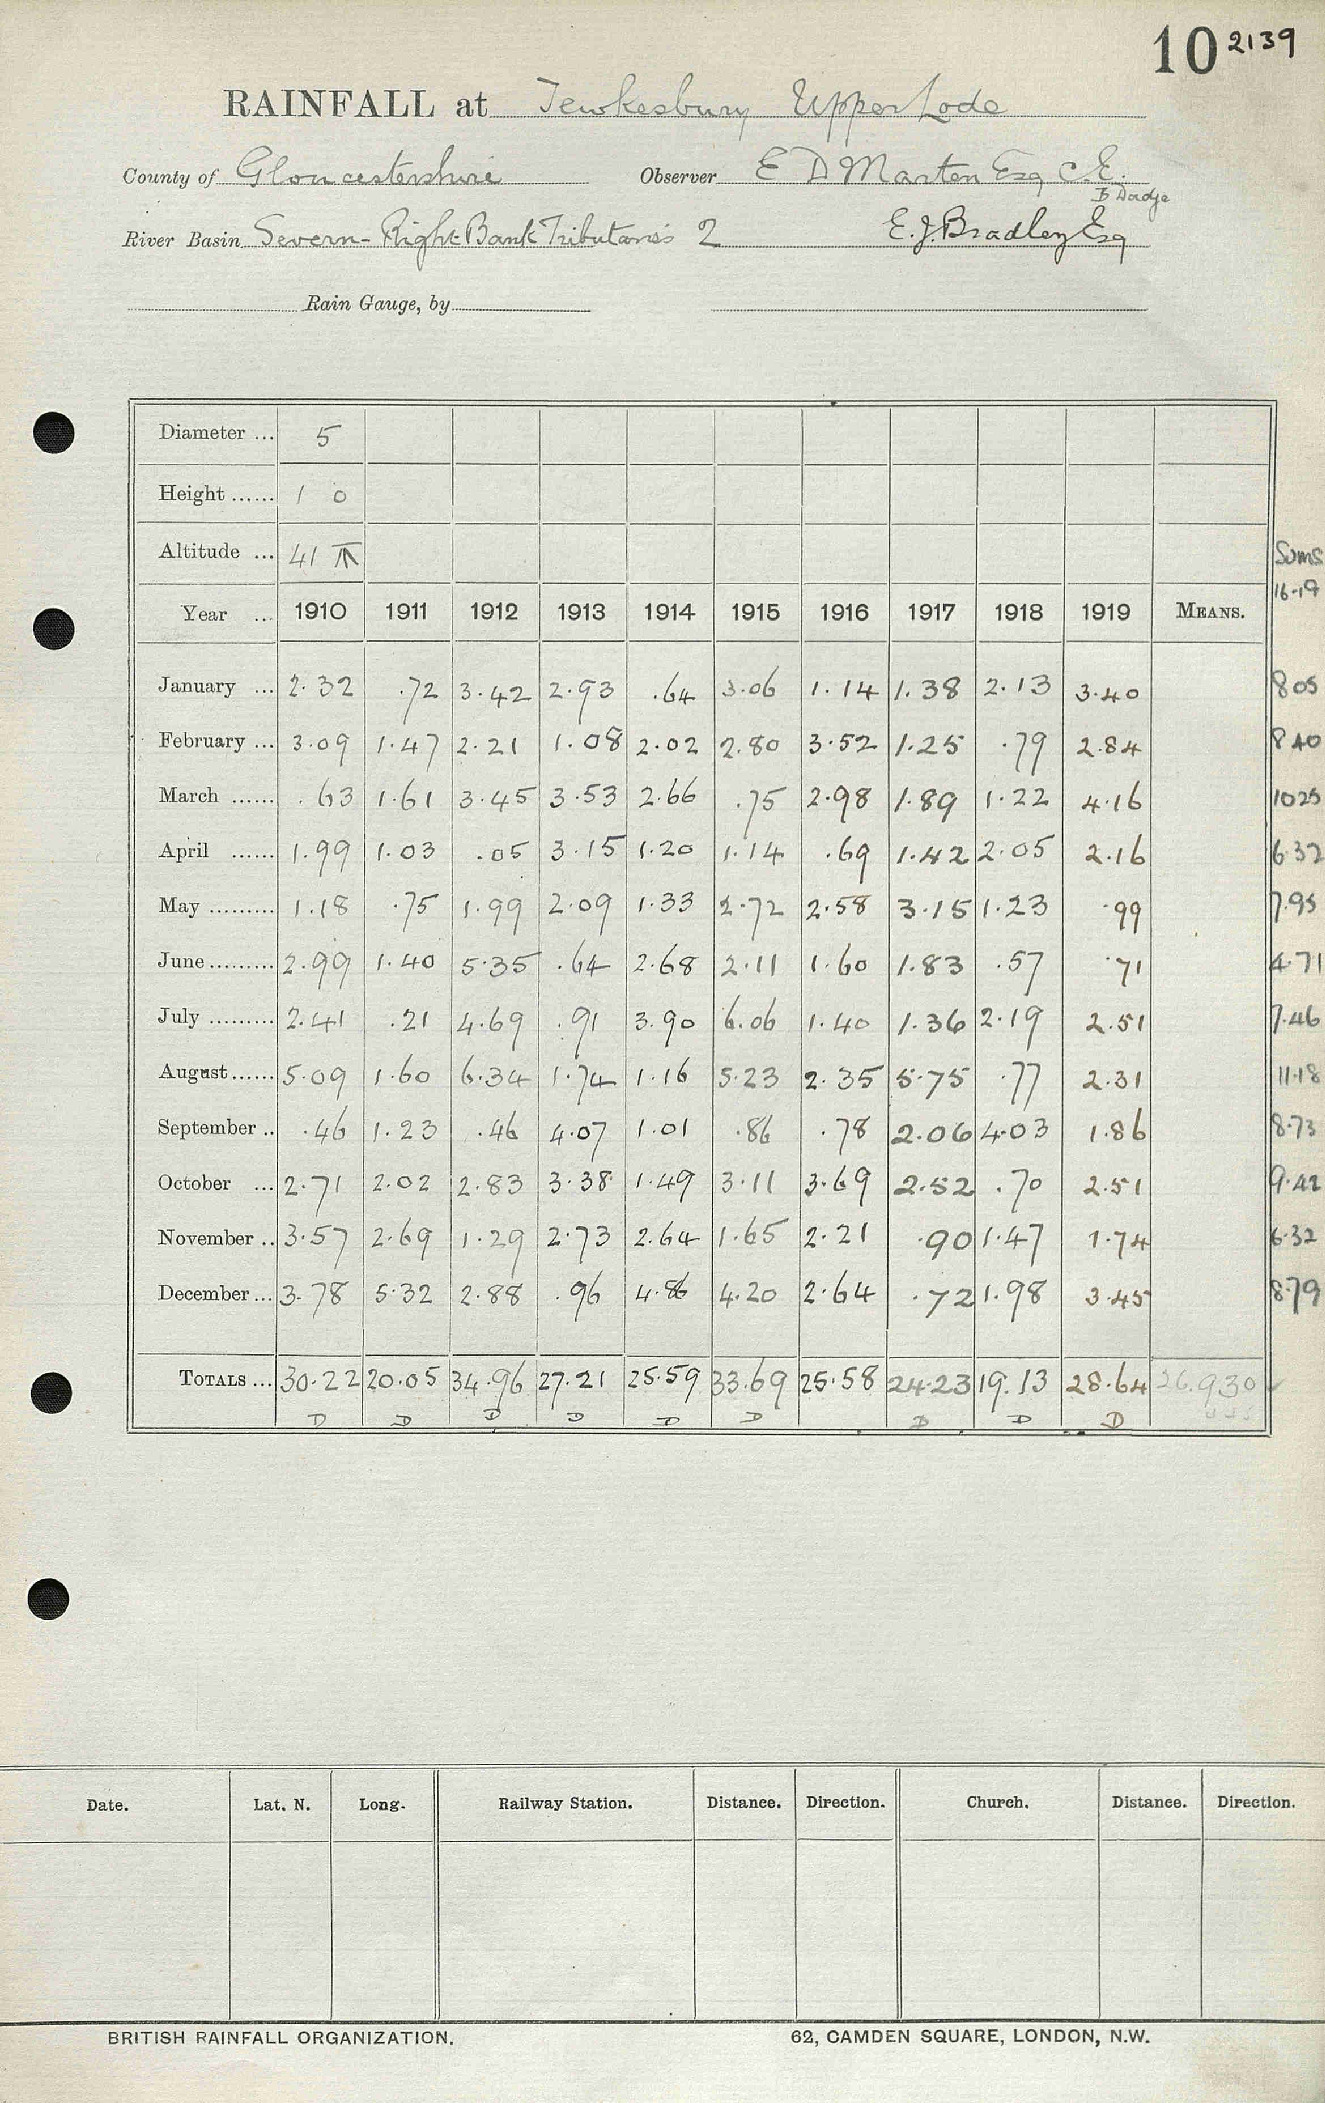 10 2139
RAINFALL at Tewkesbury Upper Lode
County of Gloucestershire Observer E D Marten Esq C.E.
B Dadge
River Basin Severn - Right Bank Tributaries 2 E. J. Bradley Esq
Rain Gauge, by
Diameter ... 5
Height ...... 1 0
Altitude ... 41
Sums
16-19
Year ... 1910 1911 1912 1913 1914 1915 1916 1917 1918 1919 MEANS.
January ... 2.32 .72 3.42 2.93 .64 3.06 1.14 1.38 2.13 3.40 8 05
February ... 3.09 1.47 2.21 1.08 2.02 2.80 3.52 1.25 .79 2.84 8 40
March ...... .63 1.61 3.45 3.53 2.66 .75 2.98 1.89 1.22 4.16 10 25
April ...... 1.99 1.03 .05 3.15 1.20 1.14 .69 1.42 2.05 2.16 6.32
May ......... 1.18 .75 1.99 2.09 1.33 2.72 2.58 3.15 1.23 .99 7.95
June ......... 2.99 1.40 5.35 .64 2.68 2.11 1.60 1.83 .57 .71 4.71
July ......... 2.41 .21 4.69 .91 3.90 6.06 1.40 1.36 2.19 2.51 7.46
August ...... 5.09 1.60 6.34 1.74 1.16 5.23 2.35 5.75 .77 2.31 11.18
September .. .46 1.23 .46 4.07 1.01 .86 .78 2.06 4.03 1.86 8.73
October ... 2.71 2.02 2.83 3.38 1.49 3.11 3.69 2.52 .70 2.51 9.42
November .. 3.57 2.69 1.29 2.73 2.64 1.65 2.21 .90 1.47 1.74 6.32
December ... 3.78 5.32 2.88 .96 4.86 4.20 2.64 .72 1.98 3.45 8.79
TOTALS ... 30.22 20.05 34.96 27.21 25.59 33.69 25.58 24.23 19.13 28.64 26.930
D D D D D D D D D
Date. Lat. N. Long. Railway Station. Distance. Direction. Church. Distance. Direction.
BRITISH RAINFALL ORGANIZATION. 62, CAMDEN SQUARE, LONDON, N.W.